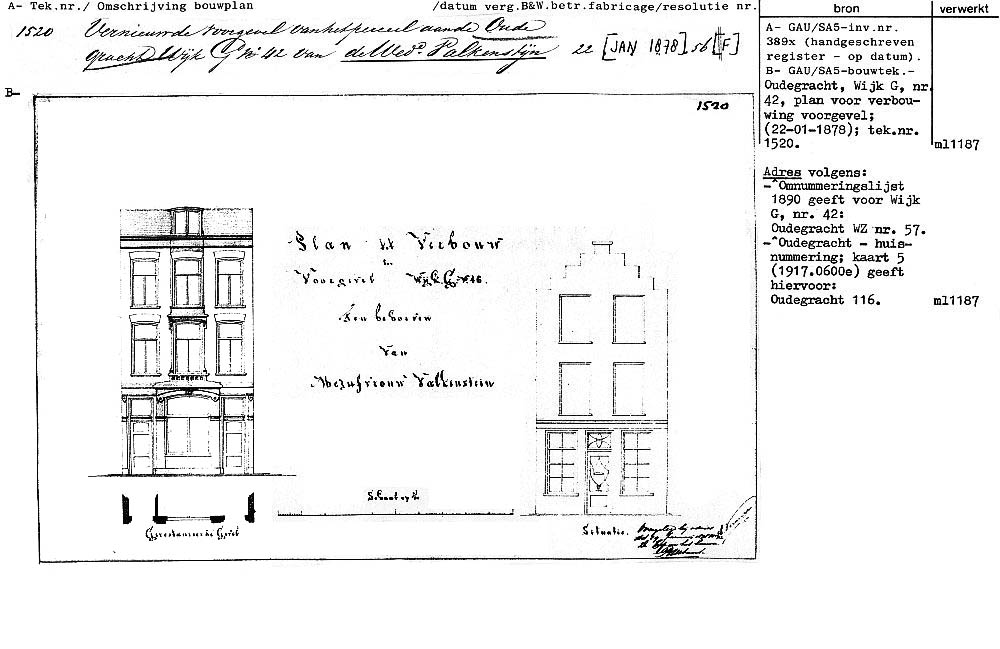 A- Tek.nr./ Omschrijving bouwplan /datum verg.B&W.betr.fabricage/resolutie nr.
bron
verwerkt
1520 Vernieuwde voorgevel van het perceel aan de Oude
gracht Wijk G No 42 van de Wed. Valkenstijn 22 [JAN 1878] 56 [F]
B-
1520
Plan tot Verbouw
Voorgevel Wijk G
Ten behoeve
Van
Mejufvrouw Valkenstein
Schaal op
Situatie.
A- GAU/SA5-inv.nr.
389x (handgeschreven
register - op datum).
B- GAU/SA5-bouwtek.-
Oudegracht, Wijk G, nr
42, plan voor verbou-
wing voorgevel;
(22-01-1878); tek.nr.
1520. ml1187
Adres volgens:
-^Omnummeringslijst
1890 geeft voor Wijk
G, nr. 42:
Oudegracht WZ nr. 57.
-^Oudegracht - huis-
nummering; kaart 5
(1917.0600e) geeft
hiervoor:
Oudegracht 116. ml1187